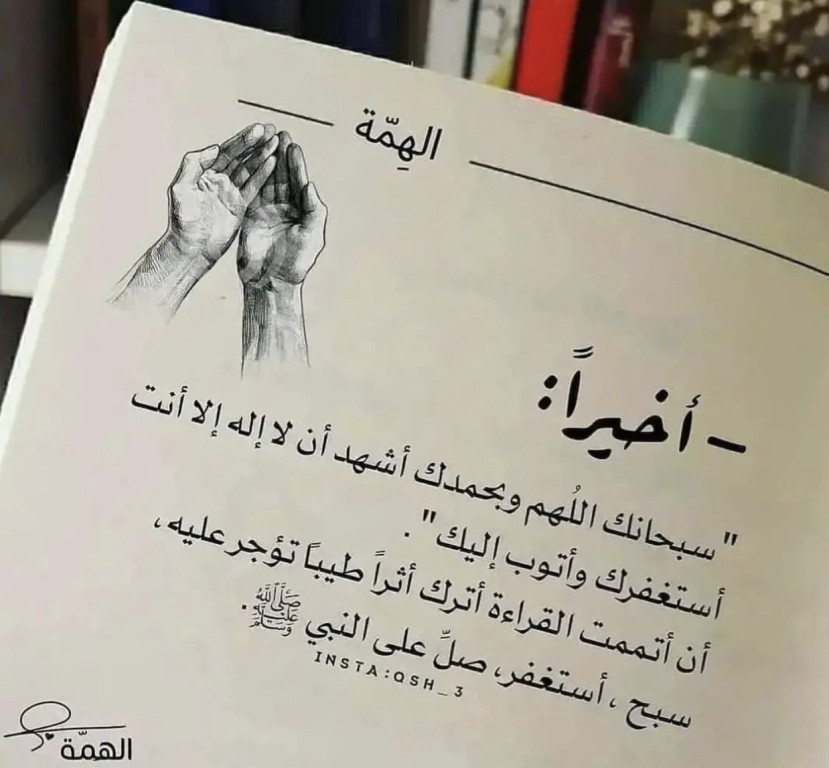 الهِمّة
- أخيراً:
"سبحانك اللُهم وبحمدك أشهد أن لا إله إلا أنت
أستغفرك وأتوب إليك".
أن أتممت القراءة أترك أثراً طيباً تؤجر عليه،
سبح ، أستغفر، صلِّ على النبي ﷺ.
INSTA:QSH_3
الهِمّة